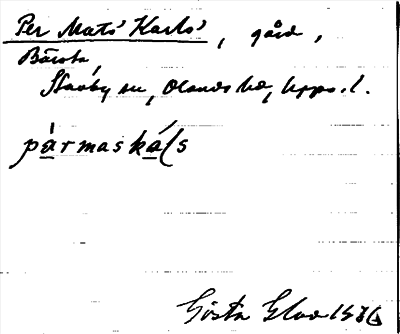 Per Mats' Karls', gård,
Bärsta,
Stavby sn, Olands hd, Upps. l.
pàrmaská̠ls
Gösta Elva 1936